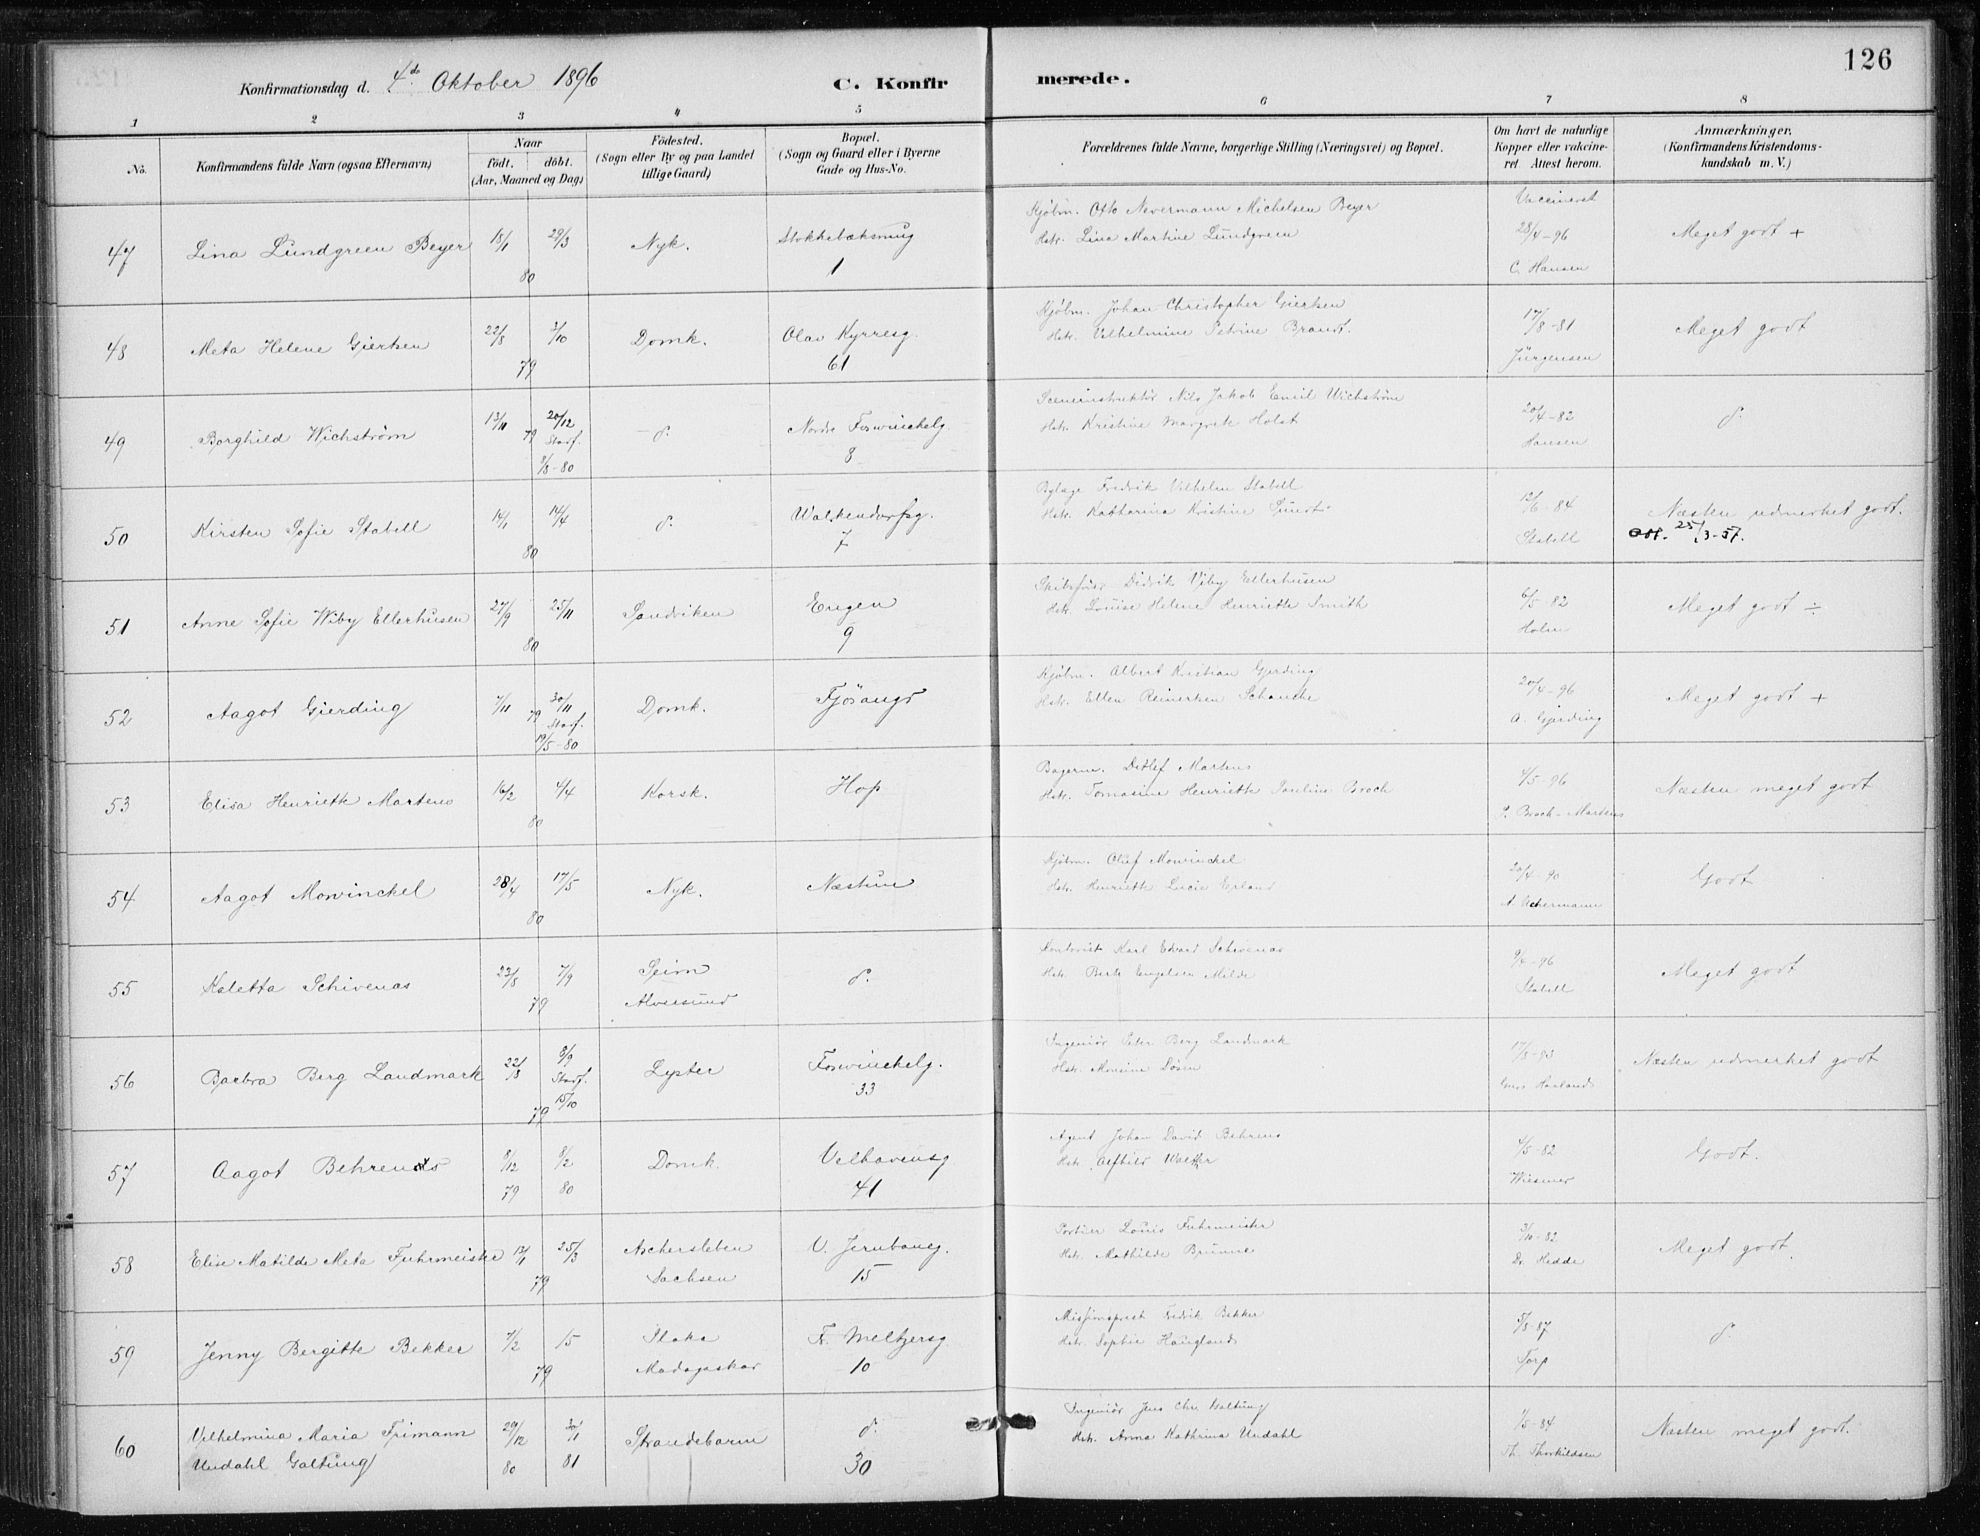 126
Konfirmationsdag d. 4de Oktober 1896
C. Konfirmerede.
1 2 3 4 5 6 7 8
No.
Konfirmandens fulde Navn (ogsaa Efternavn)
Naar
födt. döbt.
(Aar, Maaned og Dag)
Födested.
(Sogn eller By og paa Landet
tillige Gaard)
Bopæl.
(Sogn og Gaard eller i Byerne
Gade og Hus-No.
Forældrenes fulde Navne, borgerlige Stilling (Næringsvei) og Bopæl.
Om havt de naturlige
Kopper eller vakcine-
ret. Attest herom.
Anmærkninger.
(Konfirmandens Kristendoms-
kundskab m. V.)
47 Lina Lundgreen Beyer 18/1 29/3 80 Nyk. Stokkebæksmug 1
Kjøbm. Otto Nevermann Michelsen Beyer
Hstr. Lina Martine Lundgreen
Vaccineret 28/4-96 C. Hansen
Meget godt +
48 Meta Helene Gierken 22/8 3/10 79 Domk. Olav Kyrresg. 61
Kjøbm. Johan Christopher Gierken
Hstr. Vilhelmine Petrine Brandt.
17/8-81 Jürgensen
Meget godt
49 Borghild Wichstrøm 13/11 20/12 79 Stadf. 8/8-80 d. Nordre Foswinckelg. 8
Sceneinstruktör Nils Jakob Emil Wichstrøm
Hstr. Kristine Margrete Holst
20/4-82 Hansen
d.
50 Kirsten Sofie Stabell 14/1 14/4 80 d. Walkendorfsg. 7
Bylæge Fredrik Vilhelm Stabell
Hstr. Katharina Kristine Sundt
12/6-84 Stabell
Næsten udmerket godt.
25/3-57.
51 Anne Sofie Wiby Ellerhusen 27/9 25/11 80 Sandviken Engen 9
Skibsfører Didrik Viby Ellerhusen
Hstr. Louise Helene Henriette Smith
6/5-82 Holm
Meget godt ÷
52 Aagot Gierding 7/11 30/11 79 Stadf. 19/5-80 Domk. Fjösanger
Kjøbm. Albert Kristian Gjerding
Hstr. Ellen Reinerken Schanche
20/4-96 A. Gjerding
Meget godt +
53 Elisa Henriette Martens 16/2 4/4 80 Korsk. Hop
Bagerm. Detlef Martens
Hstr. Tomasine Henriette Pauline Broch
4/5-96 P. Broch-Martens
Næsten meget godt
54 Aagot Mowinckel 28/4 17/5 80 Nyk. Næstun
Kjøbm. Oluf Mowinckel
Hstr. Henriette Lucie Erland
20/4-90 A. Ackermann
Godt
55 Kaletta Schivenas 23/8 7/9 79 Seim Alversund d.
Kontorist Karl Edvard Schivenas
Hstr. Berte Engelsen Milde
9/4-96 Stabell
Meget godt
56 Barbra Berg Landmark 22/8 8/9 Stadf. 15/10 79 Lyster Foswinckelg. 33
Ingeniör Peter Berg Landmark
Hstr. Monsine
17/5-93
Næsten udmerket godt
57 Aagot Behrens 8/12 79 8/2 80 Domk. Velhavensg 41
Agent Johan David Behrens
Hstr. Alfhild Walther
4/5-82 Wiesener
Godt.
58 Elise Matilde Meta Fuhrmeister 12/1 25/3 79 Aschersleben Sachsen V. Jernbaneg. 15
Portier Louis Fuhrmeister
Hstr. Mathilde Brünne
3/10-82 Dr. Hedde
Meget godt.
59 Jenny Bergitte Bekker 7/2 15 79 Ilaka Madagaskar F. Meltzersg 10
Missionsprest Fredrik Bekker
Hstr. Sophie Haugland
5/5-87 Torp
d.
60 Vilhelmina Maria Frimann
Undahl Galtung 29/12 80 30/1 81 Strandebarm d. 30
Ingeniör Jens Chr. Galtung
Hstr. Anna Kathrina Undahl
1/5-84 Th. Thorkildsen
Næsten meget godt.